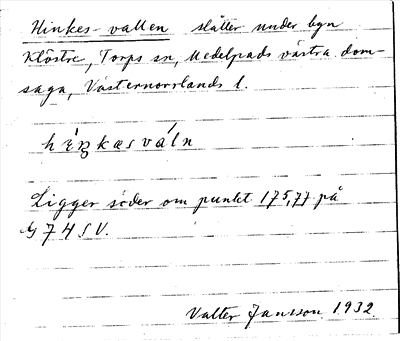 Hinkes-vallen slåtter under byn
Klöstre, Torps sn, Medelpads västra dom-
saga, Västernorrlands l.
hiŋkæsváln
Ligger söder om punkt 175,77 på
74 SV.
Valter Jansson 1932